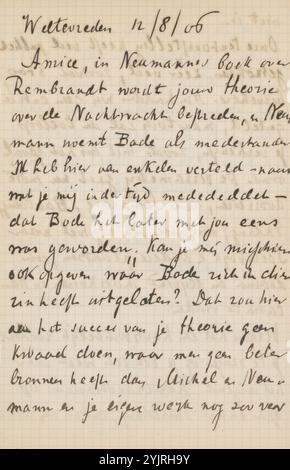 Weltevreden 12/8/06
Amice, in Neumanns boek over
Rembrandt wordt jouw theorie
over de Nachtwacht bestreden, en Neu-
mann noemt Bode als medestander
Ik heb hier aan enkelen verteld - naar
wat je mij indertijd mededeeldet -
dat Bode het later met jou eens
was geworden. Kan je mij misschien
ook opgeven wáár Bode zich in dien
zin heeft uitgelaten? Dat zou hier
aan het succes van je theorie geen
kwaad doen, waar men geen beter
bronnen heeft dan Michel en Neu-
mann en je eigen werk nog zoo veer
alamy
Image ID: 2YJRH9Y
www.alamy.com